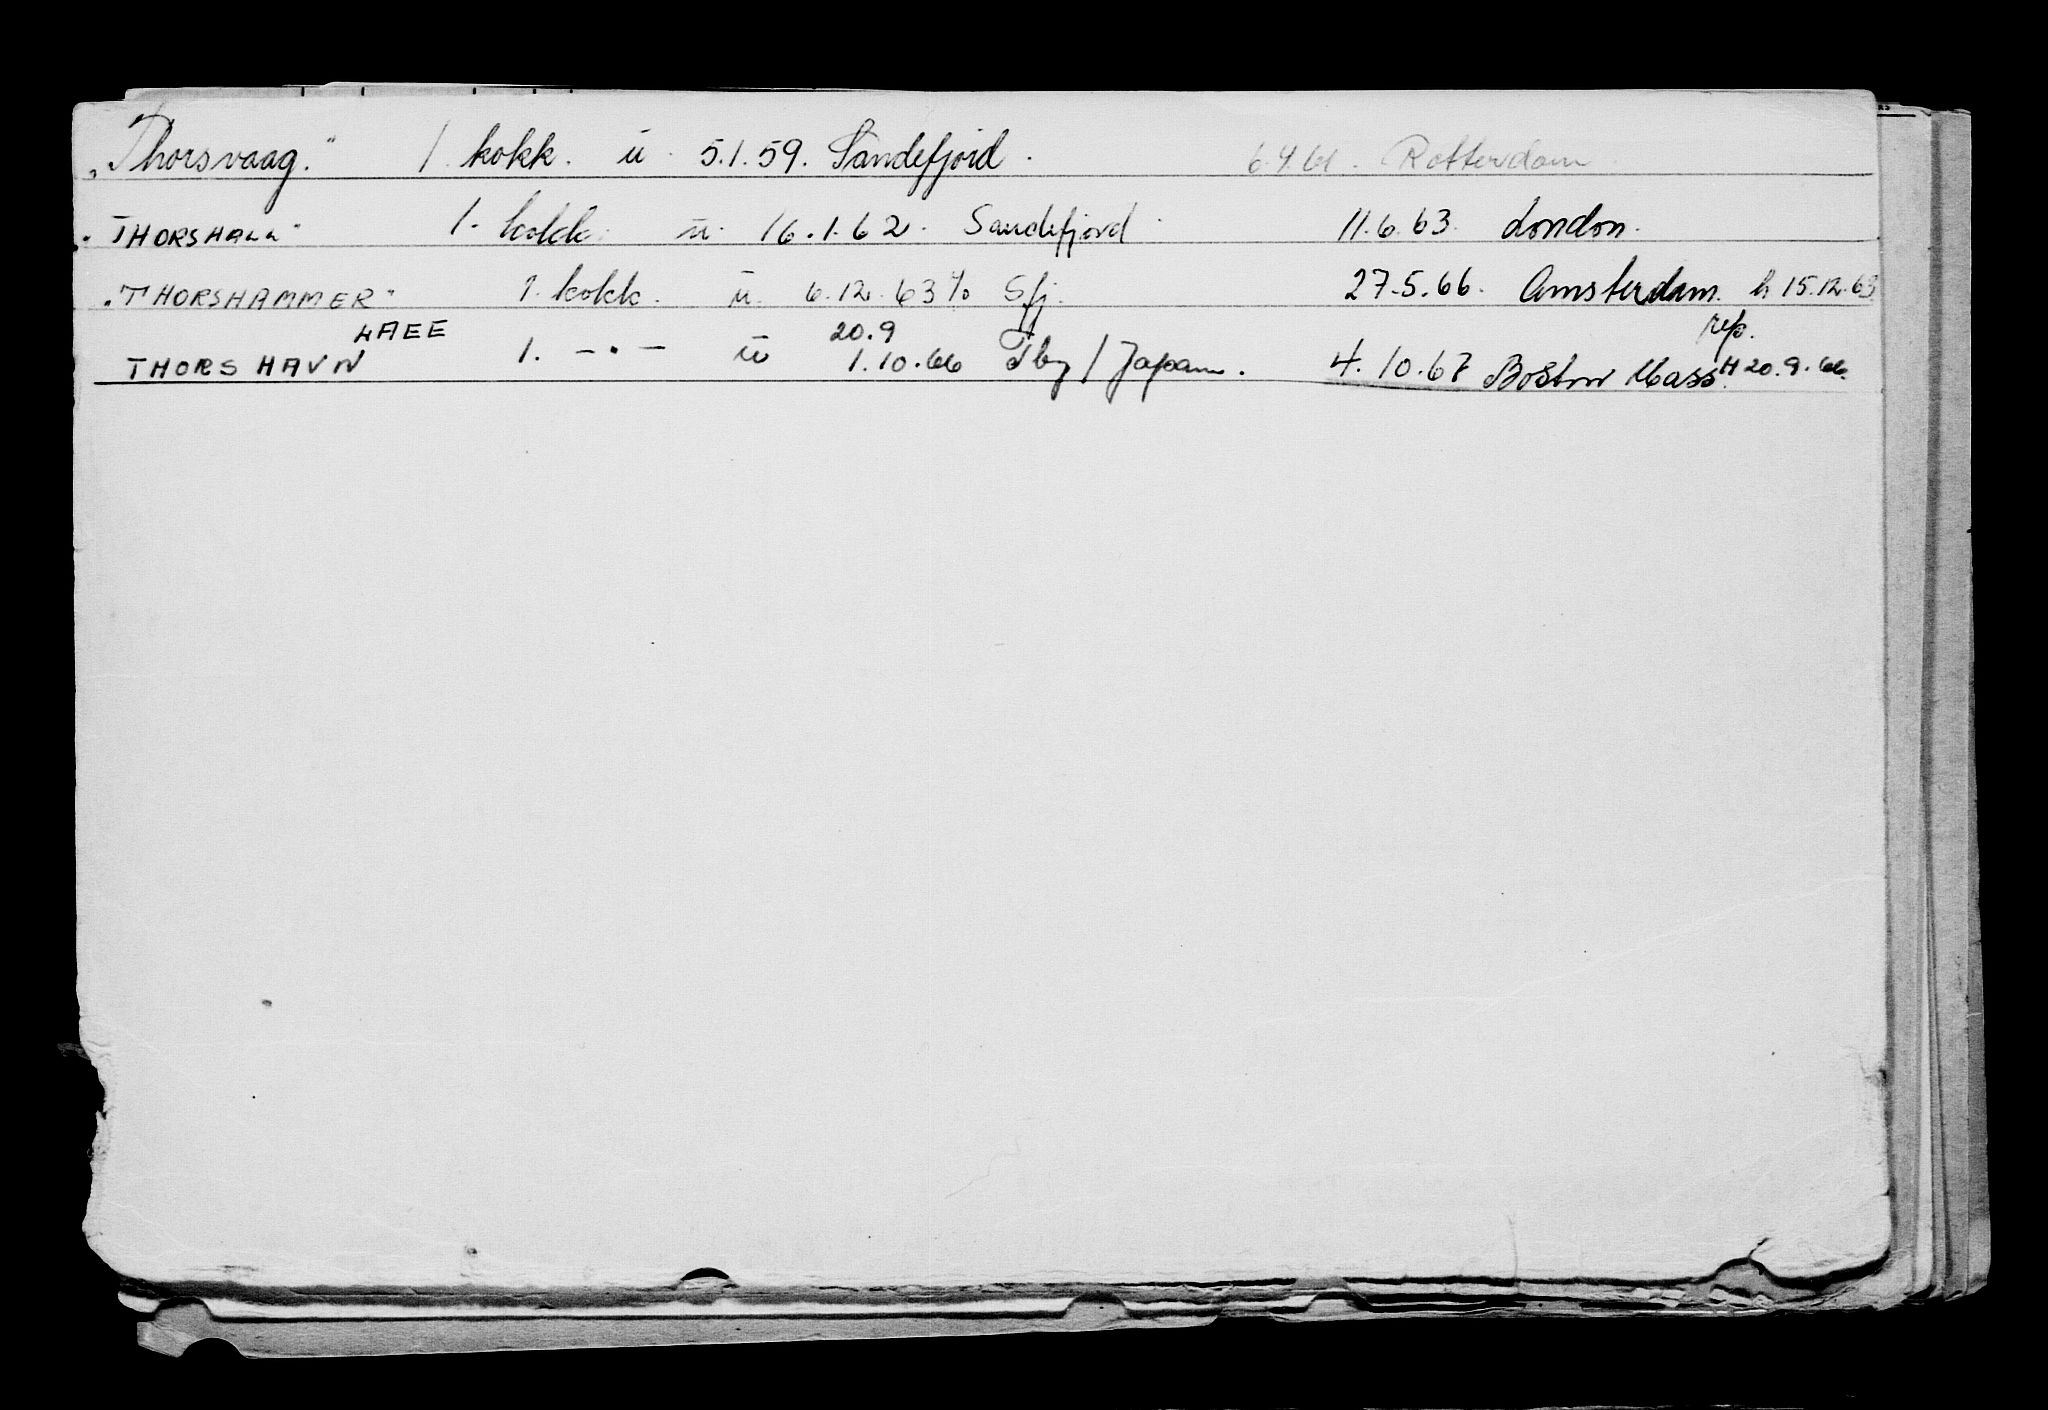 "Thorsvaag." 1 kokk. ü 5.1.59. Sandefjord. 6.4.61. Rotterdam
"THORSHALL" 1. kokk. ü. 16.1.62. Sandefjord. 11.6.63. London.
"THORSHAMMER" 1. kokk. ü. 6.12.63 % Sfj. 27.5.66. Amsterdam. h 15.12.63
20.9 rep.
THORSHAVN 1. –·– ü 1.10.66 Tbg/Japan. 4.10.67 Boston Mass. H 20.9.66.